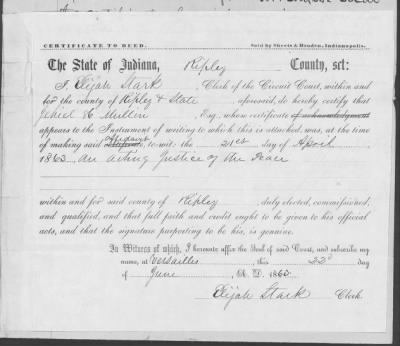 CERTIFICATE TO DEED. Sold by Sheets & Braden, Indianapolis.
The State of Indiana, Ripley County, sct:
I, Elijah Stark Clerk of the Circuit Court, within and
for the county of Ripley & State aforesaid, do hereby certify that
Esq., whose certificate of acknowledgment
appears to the Instrument of writing to which this is attached, was, at the time
of making said Affidavit, to wit: the 21st day of April
1863 an acting Justice of the Peace
within and for said county of Ripley duly elected, commissioned,
and qualified, and that full faith and credit ought to be given to his official
acts, and that the signature purporting to be his, is genuine.
In Witness of which, I hereunto affix the Seal of said Court, and subscribe my
name, at Versailles, this 22d day
of June, A. D. 1863.
Elijah Stark Clerk.